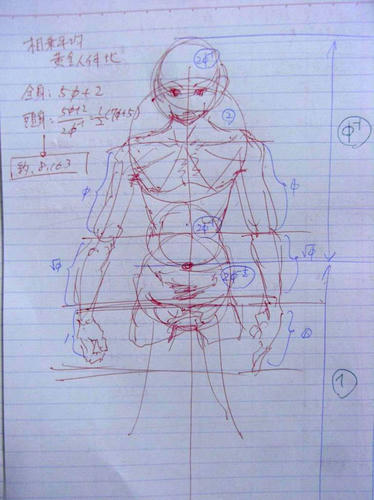 相乗平均
黄金人体比
全身: 5φ+2
頭身: 5φ+2/2φ⁻¹ = 1/2(7φ+5)
約 8.163
2φ⁻¹
2
φ⁻¹
φ
φ
2φ⁻¹
√φ
√φ
1
1